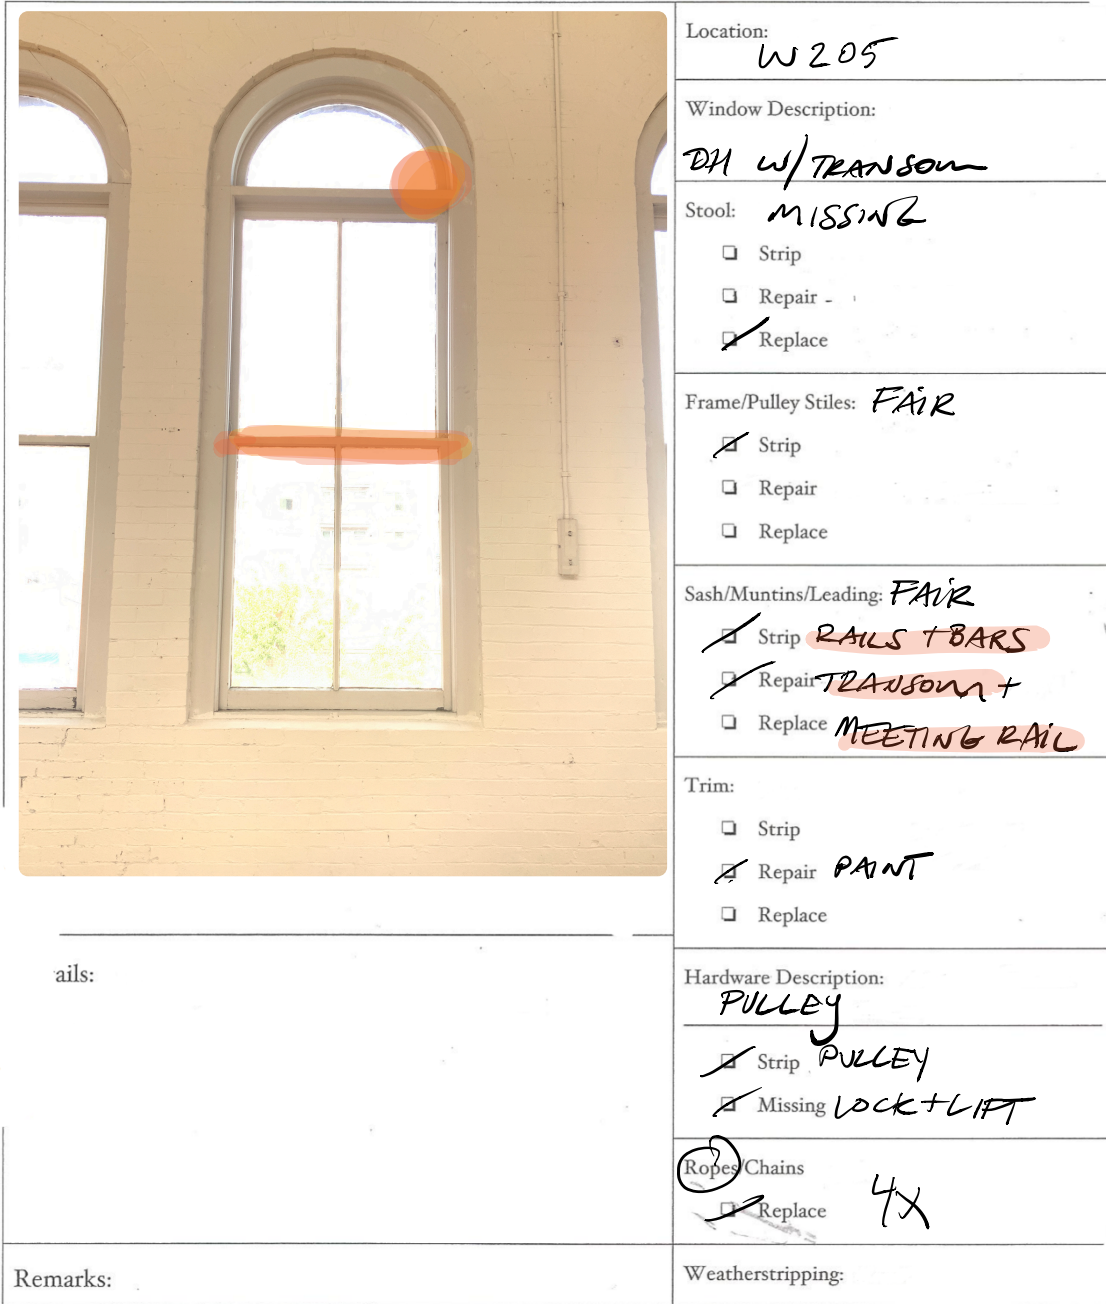 Location:
W205
Window Description:
DH W/TRANSOM
Stool: MISSING
Strip
Repair
Replace
Frame/Pulley Stiles: FAIR
Strip
Repair
Replace
Sash/Muntins/Leading: FAIR
Strip RAILS + BARS
Repair TRANSOM +
Replace MEETING RAIL
Trim:
Strip
Repair PAINT
Replace
ails:
Hardware Description:
PULLEY
Strip PULLEY
Missing LOCK + LIFT
Ropes/Chains
Replace 4X
Remarks:
Weatherstripping: